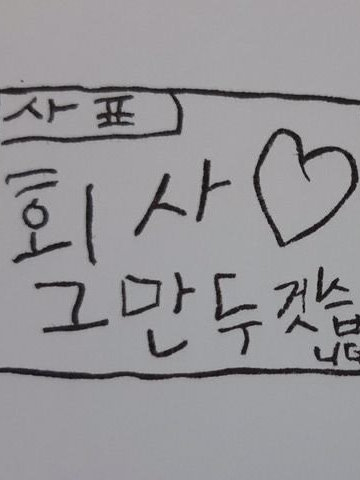 사표
회사♡
그만두겟습니다